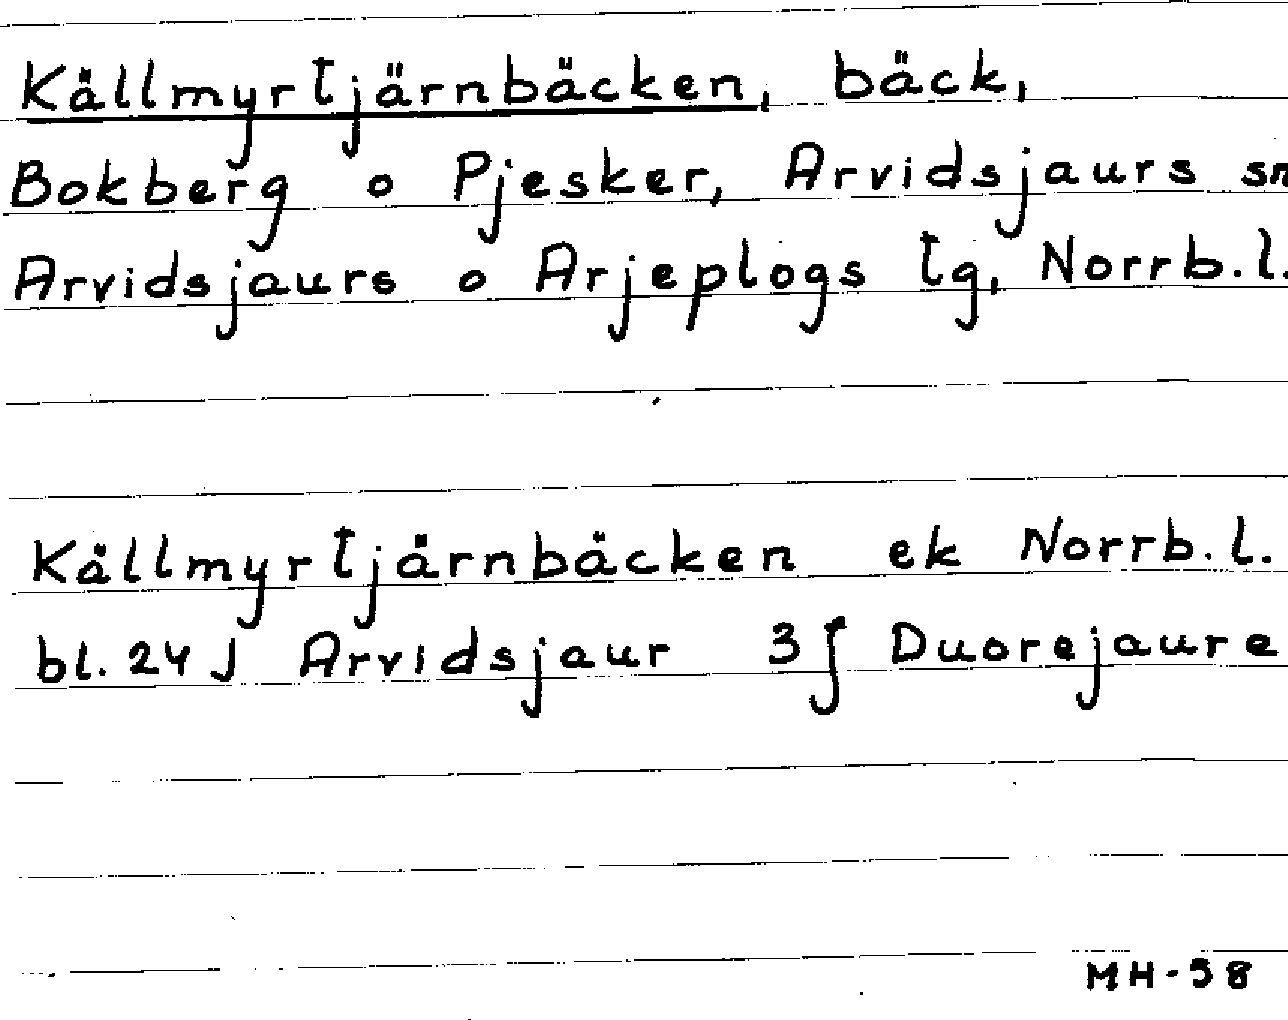 Källmyrtjärnbäcken, bäck,
Bokberg o Pjesker, Arvidsjaurs sn
Arvidsjaurs o Arjeplogs tg, Norrb.l.
Källmyrtjärnbäcken ek Norrb.l.
bl. 24 J Arvidsjaur 3 f Duorejaure
MH-98